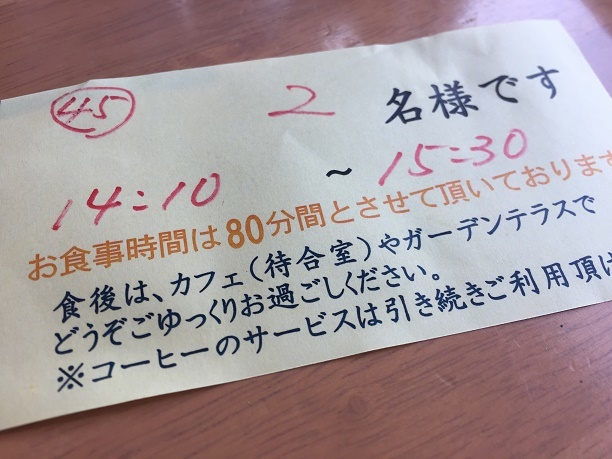 45 2 名様です
14:10 ~ 15:30
お食事時間は80分間とさせて頂いております
食後は、カフェ(待合室)やガーデンテラスで
どうぞごゆっくりお過ごしください。
※コーヒーのサービスは引き続きご利用頂け